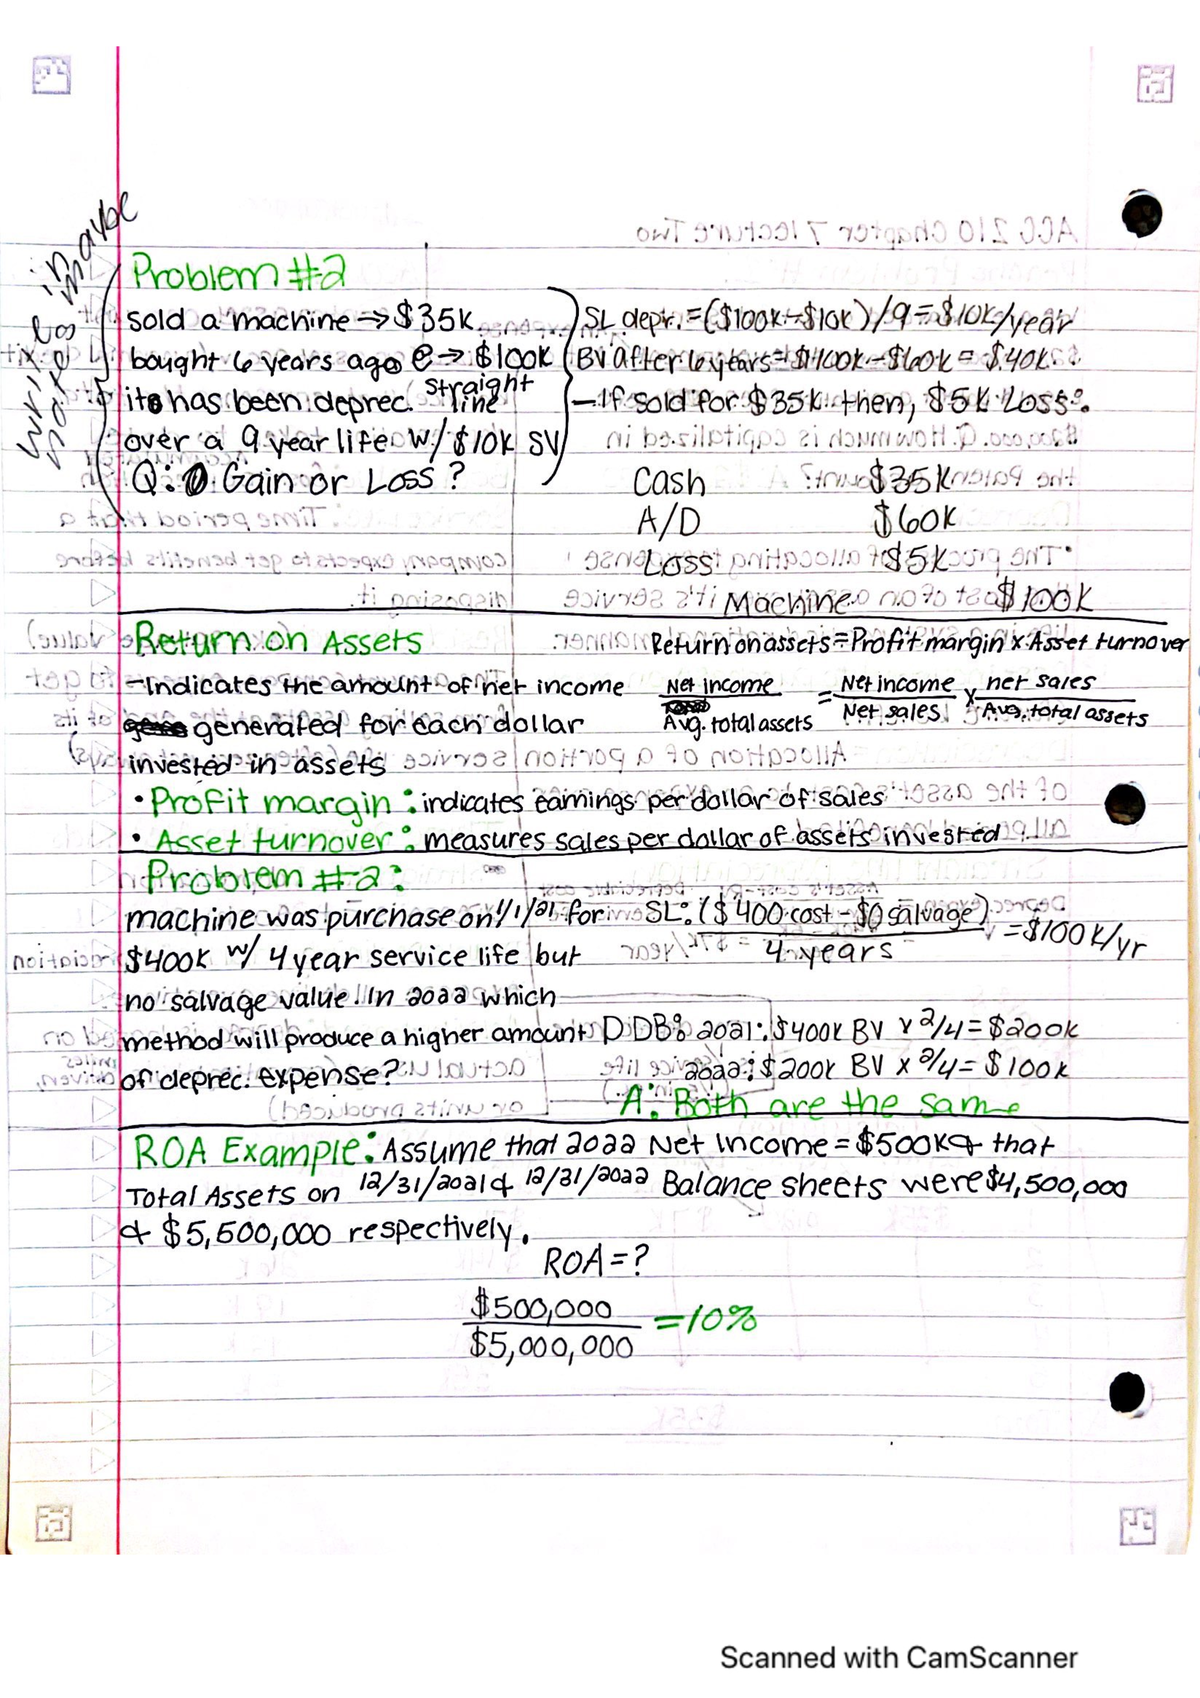 write in
notes maybe
Problem #2
sold a machine → $35k
bought 6 years ago @ → $100k
its has been deprec. straight line
over a 9 year life w/ $10k SV
Q: Gain or Loss?
SL depr. = ($100k - $10k) / 9 = $10k/year
BV after 6 years = $100k - $60k = $40k
- If sold for $35k then, $5k Loss.
Cash $35k
A/D $60k
Loss $5k
Machine $100k
Return on Assets
- Indicates the amount of net income
generated for each dollar
invested in assets
Return on assets = Profit margin x Asset turnover
Net income = Net income x net sales
Avg. total assets Net sales Avg. total assets
• Profit margin: indicates earnings per dollar of sales
• Asset turnover: measures sales per dollar of assets invested
Problem #2:
machine was purchase on 1/1/21 for
$400k w/ 4 year service life but
no salvage value. In 2022 which
method will produce a higher amount
of deprec. expense?
SL: ($400 cost - $0 salvage) = $100k/yr
4 years
DDB: 2021: $400k BV x 2/4 = $200k
2022: $200k BV x 2/4 = $100k
A: Both are the same
ROA Example: Assume that 2022 Net Income = $500k & that
Total Assets on 12/31/2021 & 12/31/2022 Balance sheets were $4,500,000
& $5,500,000 respectively.
ROA = ?
$500,000 = 10%
$5,000,000
Scanned with CamScanner